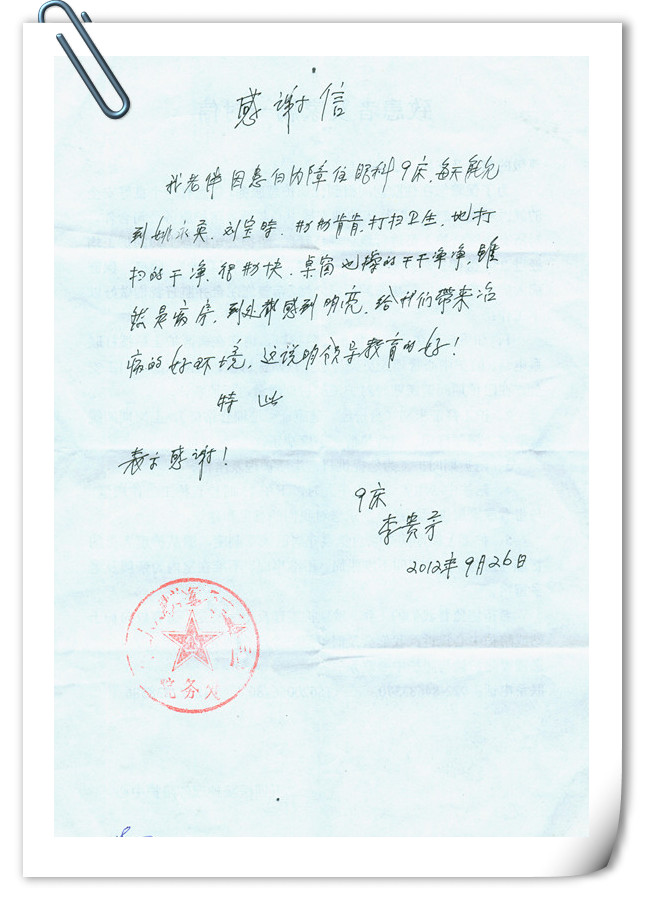 感谢信
我老伴因患白内障住眼科9床,每天能见
到姚永英、刘宝 勤勤肯肯,打扫卫生,地打
扫的干净、很勤快、桌窗也擦的干干净净,虽
然是病房,到处都感到明亮,给我们带来治
病的好环境,这说明领导教育的好!
特此
表示感谢!
9床
李贵
2012年9月26日
院务